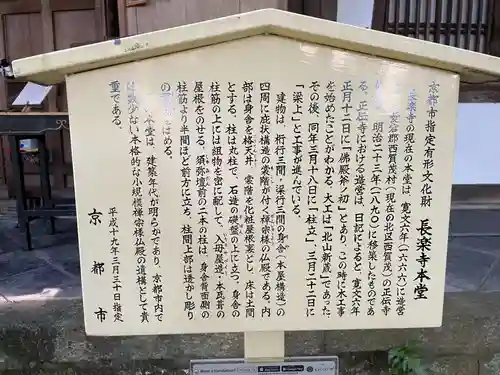 京都市指定有形文化財
長楽寺本堂
長楽寺の現在の本堂は、寛文六年(一六六六)に造営
西賀茂村(現在の北区西賀茂)の正伝寺
明治二十三年(一八九〇)に移築したものであ
る。正伝寺における造営は、日記によると、寛文六年
正月十二日に「佛殿斧ノ初」とあり、この時に木工事
を始めたことがわかる。大工は「北山新蔵」であった
その後、同年二月十八日に「柱立」、三月二十二日に
「梁上」と工事が進んでいる。
建物は、桁行三間・梁行三間の身舎(本屋構造)の
四周に庇状構造の裳階が付く禅宗様の仏殿である。内
部は身舎を格天井、裳階を化粧屋根裏とし、床は土間
とする。柱は丸柱で、石造の礎盤の上に立つ。身舎の
柱筋の上には組物を密に配して、入母屋造・本瓦葺の
屋根をのせる。須弥壇前の二本の柱は、身舎背面側の
柱筋より半間ほど前方に立ち、柱間上部は透かし彫り
の はめる。
本堂は、建築年代が明らかであり、京都市内で
は数少ない本格的な小規模禅宗様仏殿の遺構として貴
重である。
平成十九年三月三十日指定
京都市